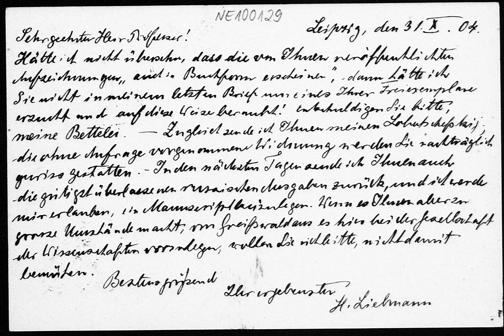 NE100129
Leipzig, den 31. X. 04.
Sehr geehrter Herr Professor!
Hätte ich nicht übersehen, dass die von Ihnen veröffentlichten
Aufzeichnungen, auch in Buchform erscheinen, dann hätte ich
Sie nicht in meinem letzten Brief um eines Ihrer Freiexemplare
ersucht und auf diese Weise beraubt! entschuldigen Sie bitte,
meine Bettelei. — Zugleich sende ich Ihnen meinen Lobatschefskij,
die ohne Anfrage vorgenommene Widmung werden Sie nachträglich
gestatten. — In den nächsten Tagen sende ich Ihnen auch
die gütigst überlassenen russischen Ausgaben zurück, und ich werde
mir erlauben, ein Manuscript beizulegen. Wenn es Ihnen aber zu
grosse Umstände macht, von Greifswald aus es hier bei der Gesellschaft
der Wissenschaften vorzulegen, wollen Sie sich bitte, nicht damit
bemühen.
Bestens grüssend
Ihr ergebenster
H. Liebmann